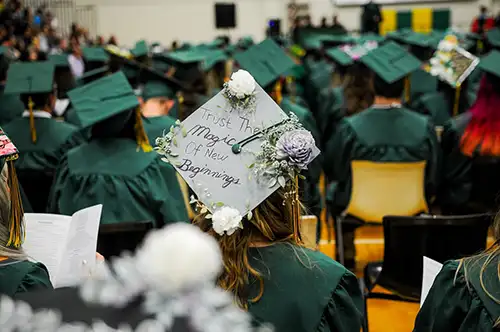 Trust The
Magic
Of New
Beginnings